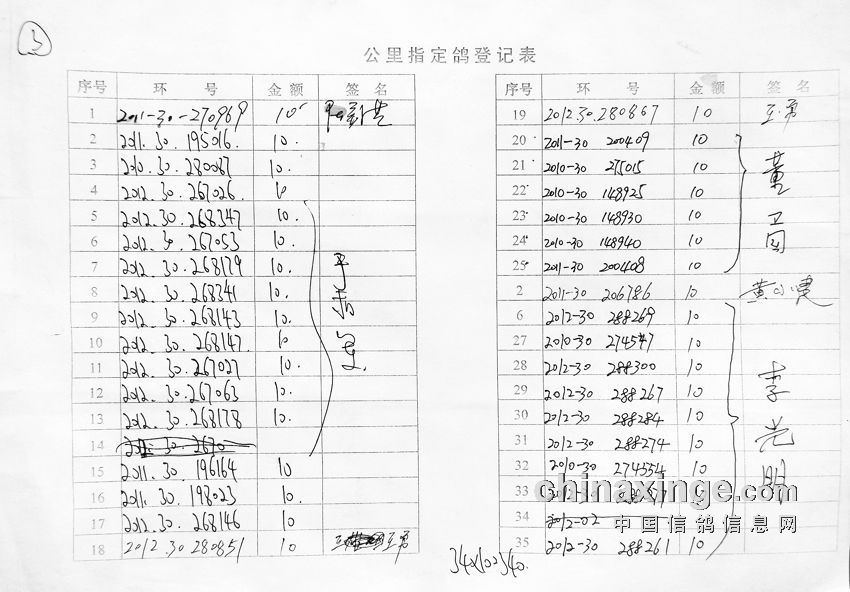 3
公里指定鸽登记表
序号 环 号 金额 签 名
1 2011-30-270969 10
2 2011.30.195016. 10.
3 2010.30.280087 10.
4 2012.30.267026. 10
5 2012.30.268347 10.
6 2012.30.267053 10.
7 2012.30.268179 10.
8 2012.30.268341 10.
9 2012.30.268143 10.
10 2012.30.268147. 10
11 2012.30.267027 10.
12 2012.30.267063 10.
13 2012.30.268178 10.
14 30.2670
15 2011.30.196164 10
16 2011.30.198023 10.
17 2012.30.268146 10
18 2012.30 280851 10 王勇
序号 环 号 金额 签 名
19 2012.30.280867 10 王勇
20 2011-30 200409 10
21 2010-30 275015 10
22 2010-30 148925 10
23 2010-30 148930 10
24 2010-30 148940 10
25 2011-30 200408 10
董卫国
2 2011-30 206186 10 黄小健
6 2012-30 288269 10
27 2010-30 274547 10
28 2012-30 288300 10
29 2012-30 288267 10
30 2012-30 288284 10
31 2012-30 288274 10
32 2010-30 274554 10
33 2012-30
34 2012-02
35 2012-30 288261 10
李光明
34x10=340.
chinaxinge.com
中国信鸽信息网